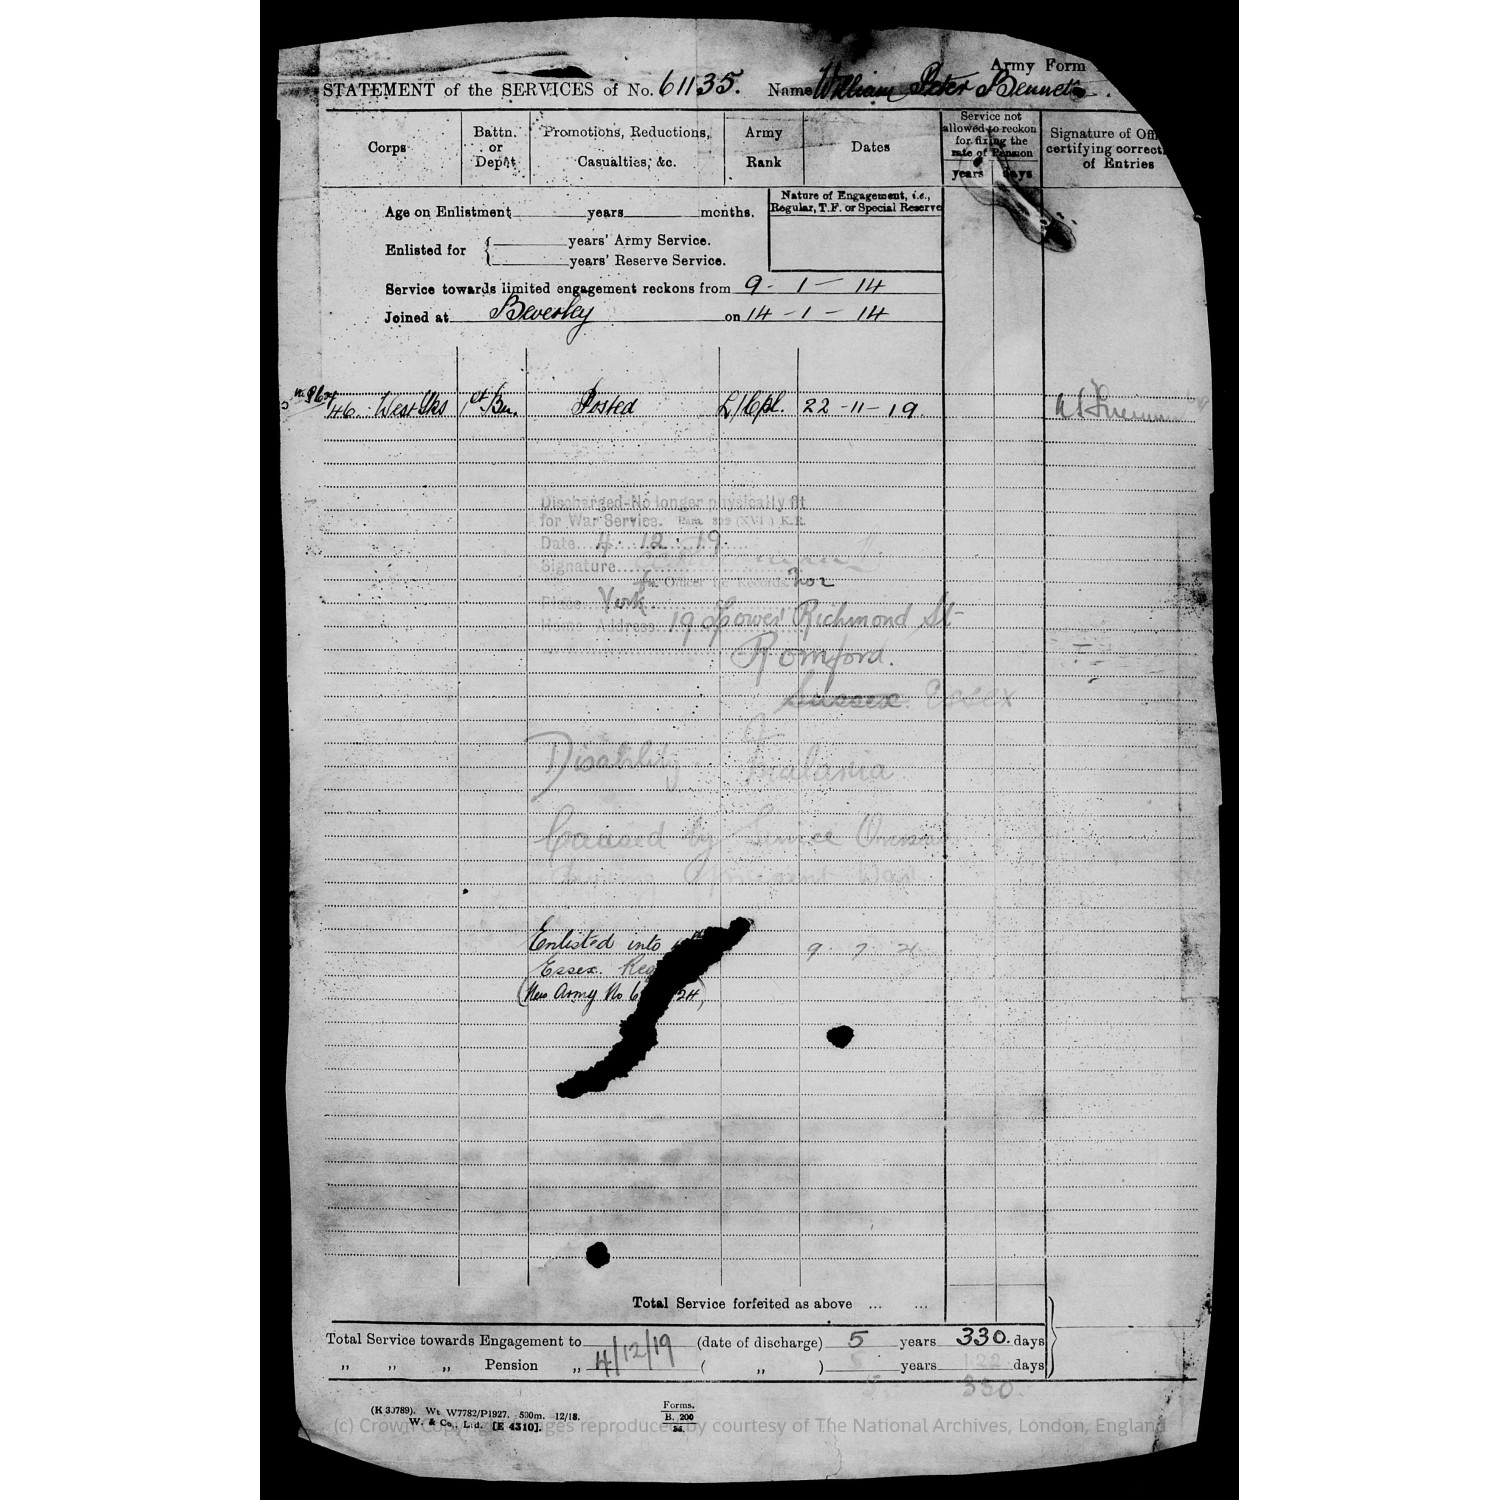 Army Form
STATEMENT of the SERVICES of No. 61135. Name William Peter Bennett.
Corps
Battn. or Depôt
Promotions, Reductions, Casualties, &c.
Army Rank
Dates
Service not allowed to reckon for fixing the rate of Pension
years days
Signature of Off
certifying correct
of Entries
Age on Enlistment years months.
Nature of Engagement, i.e., Regular, T.F. or Special Reserve
Enlisted for { years' Army Service.
years' Reserve Service.
Service towards limited engagement reckons from 9 - 1 - 14
Joined at Beverley on 14 - 1 - 14
West Yks 1st Bn. Posted L/Cpl. 22-11-19
Discharged-No longer physically fit
for War Service. Para. K.R.
Date 4 . 12 . 19.
Signature
for Officer i/c Records. No 2
Place York
Home Address. 19 Lower Richmond St
Romford.
Sussex Essex
Disability. Malaria
Caused by Service Overseas
during present War
Enlisted into 9 7
Essex. Reg
(New Army No 6 24)
Total Service forfeited as above ... ...
Total Service towards Engagement to 4/12/19 (date of discharge) 5 years 330. days
„ „ „ Pension „ ( „ ) years days
5 330
(K 30789). Wt. W7782/P1927. 500m. 12/18.
W. & Co., Ltd. [E 4310].
Forms.
B. 200
(c) Crown Copyright Images reproduced by courtesy of The National Archives, London, England